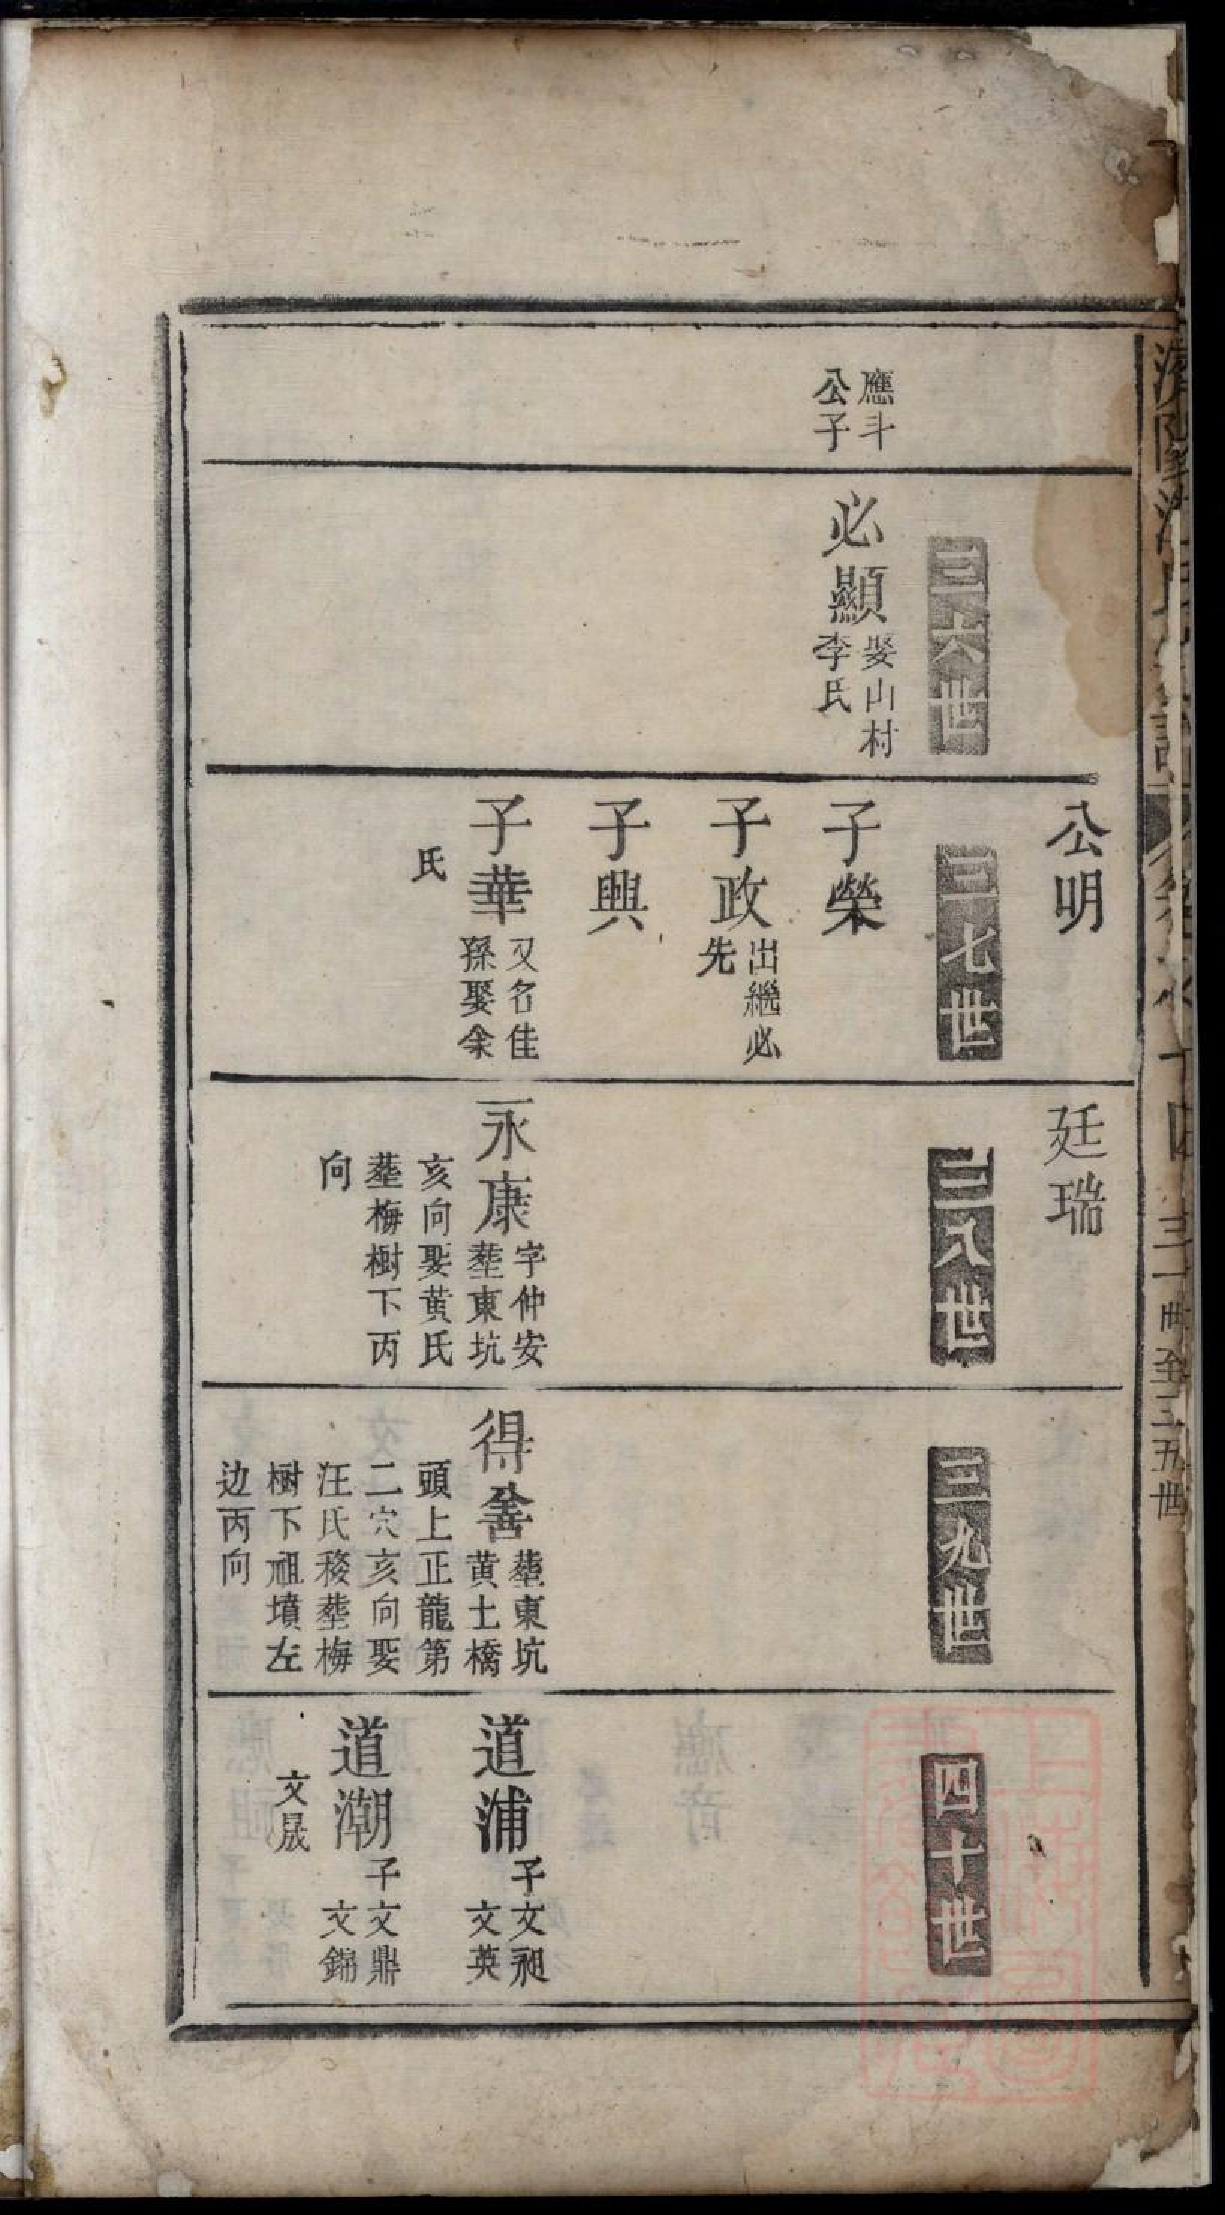 公明
廷瑞
三六世
三七世
三八世
三九世
四十世
應斗
公子
必顯
娶山村
李氏
子榮
子政
出繼必
先
子興
子華
又名佳
孫娶余
氏
永康
字仲安
塟東坑
亥向娶黄氏
塟梅樹下丙
向
得善
塟東坑
黄土橋
頭上正龍第
二穴亥向娶
汪氏移塟梅
樹下祖墳左
边丙向
道浦
子文昶
文英
道潮
子文鼎
文錦
文晟